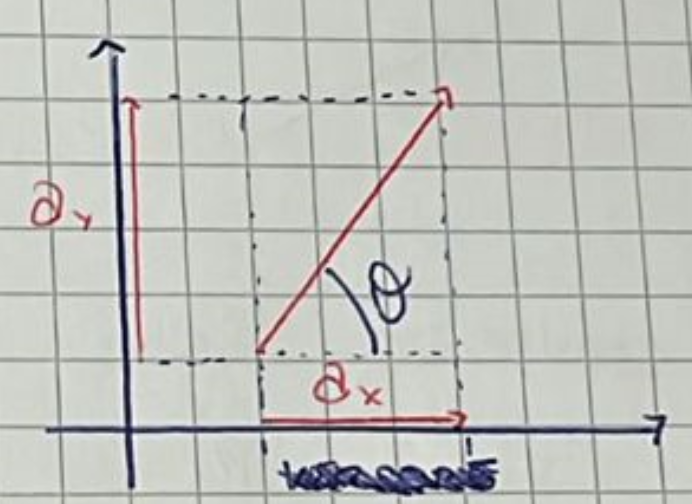 a_y
θ
a_x